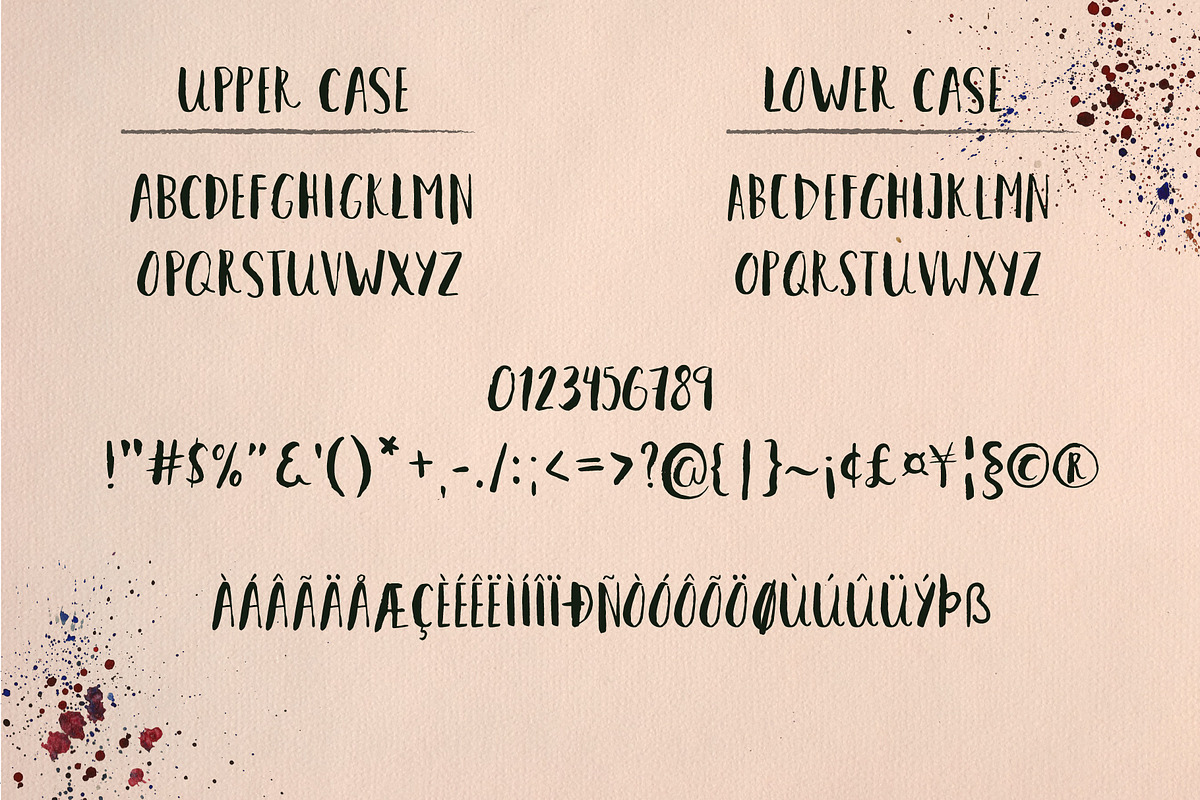 UPPER CASE
ABCDEFGHIGKLMN
OPQRSTUVWXYZ
LOWER CASE
ABCDEFGHIJKLMN
OPQRSTUVWXYZ
0123456789
!"#$%"&'()*+,-./:;<=>?@{|}~¡¢£¤¥¦§©®
ÀÁÂÃÄÅÆÇÈÉÊËÌÍÎÏÐÑÒÓÔÕÖØÙÚÛÜÝÞß